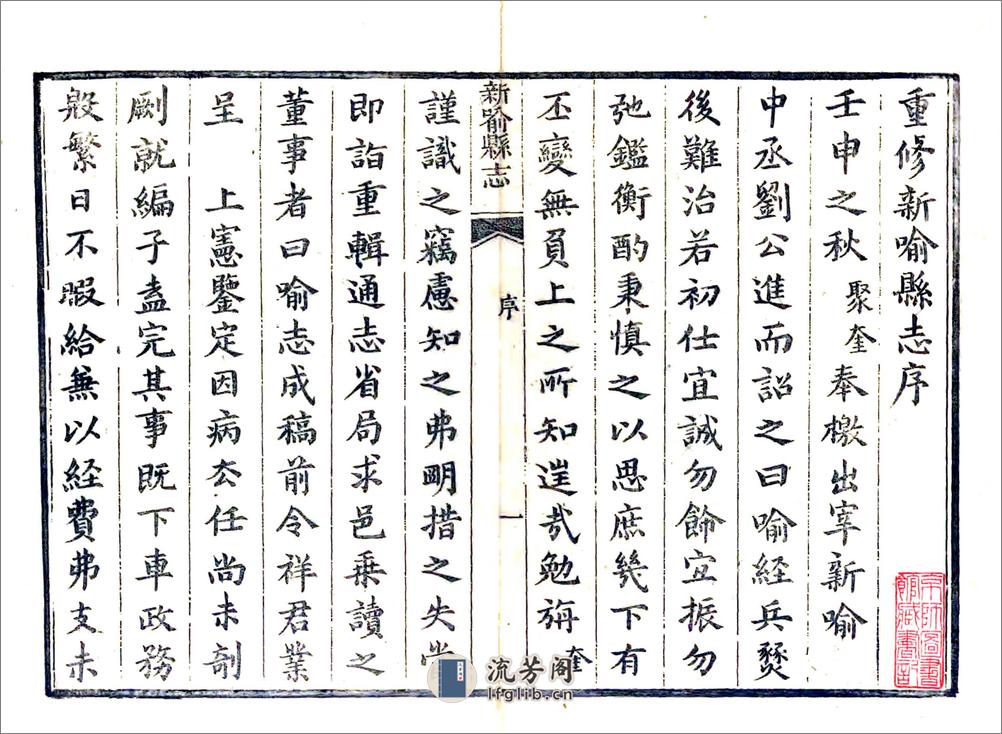 重修新喻縣志序
壬申之秋聚奎奉檄出宰新喻
中丞劉公進而詔之曰喻經兵燹
後難治若初仕宜誠勿餙宜振勿
弛鑑衡酌秉慎之以思庶幾下有
丕變無負上之所知逞哉勉旃奎
新喻縣志
序
一
謹識之竊慮知之弗明措之失當
即詣重輯通志省局求邑乗讀之
董事者曰喻志成稿前令祥君業
呈 上憲鑒定因病去任尚未剞
劂就編子盍完其事既下車政務
殷繁日不暇給兼以經費弗支未
京師圖書館藏書記
流芳阁
lfglib.cn